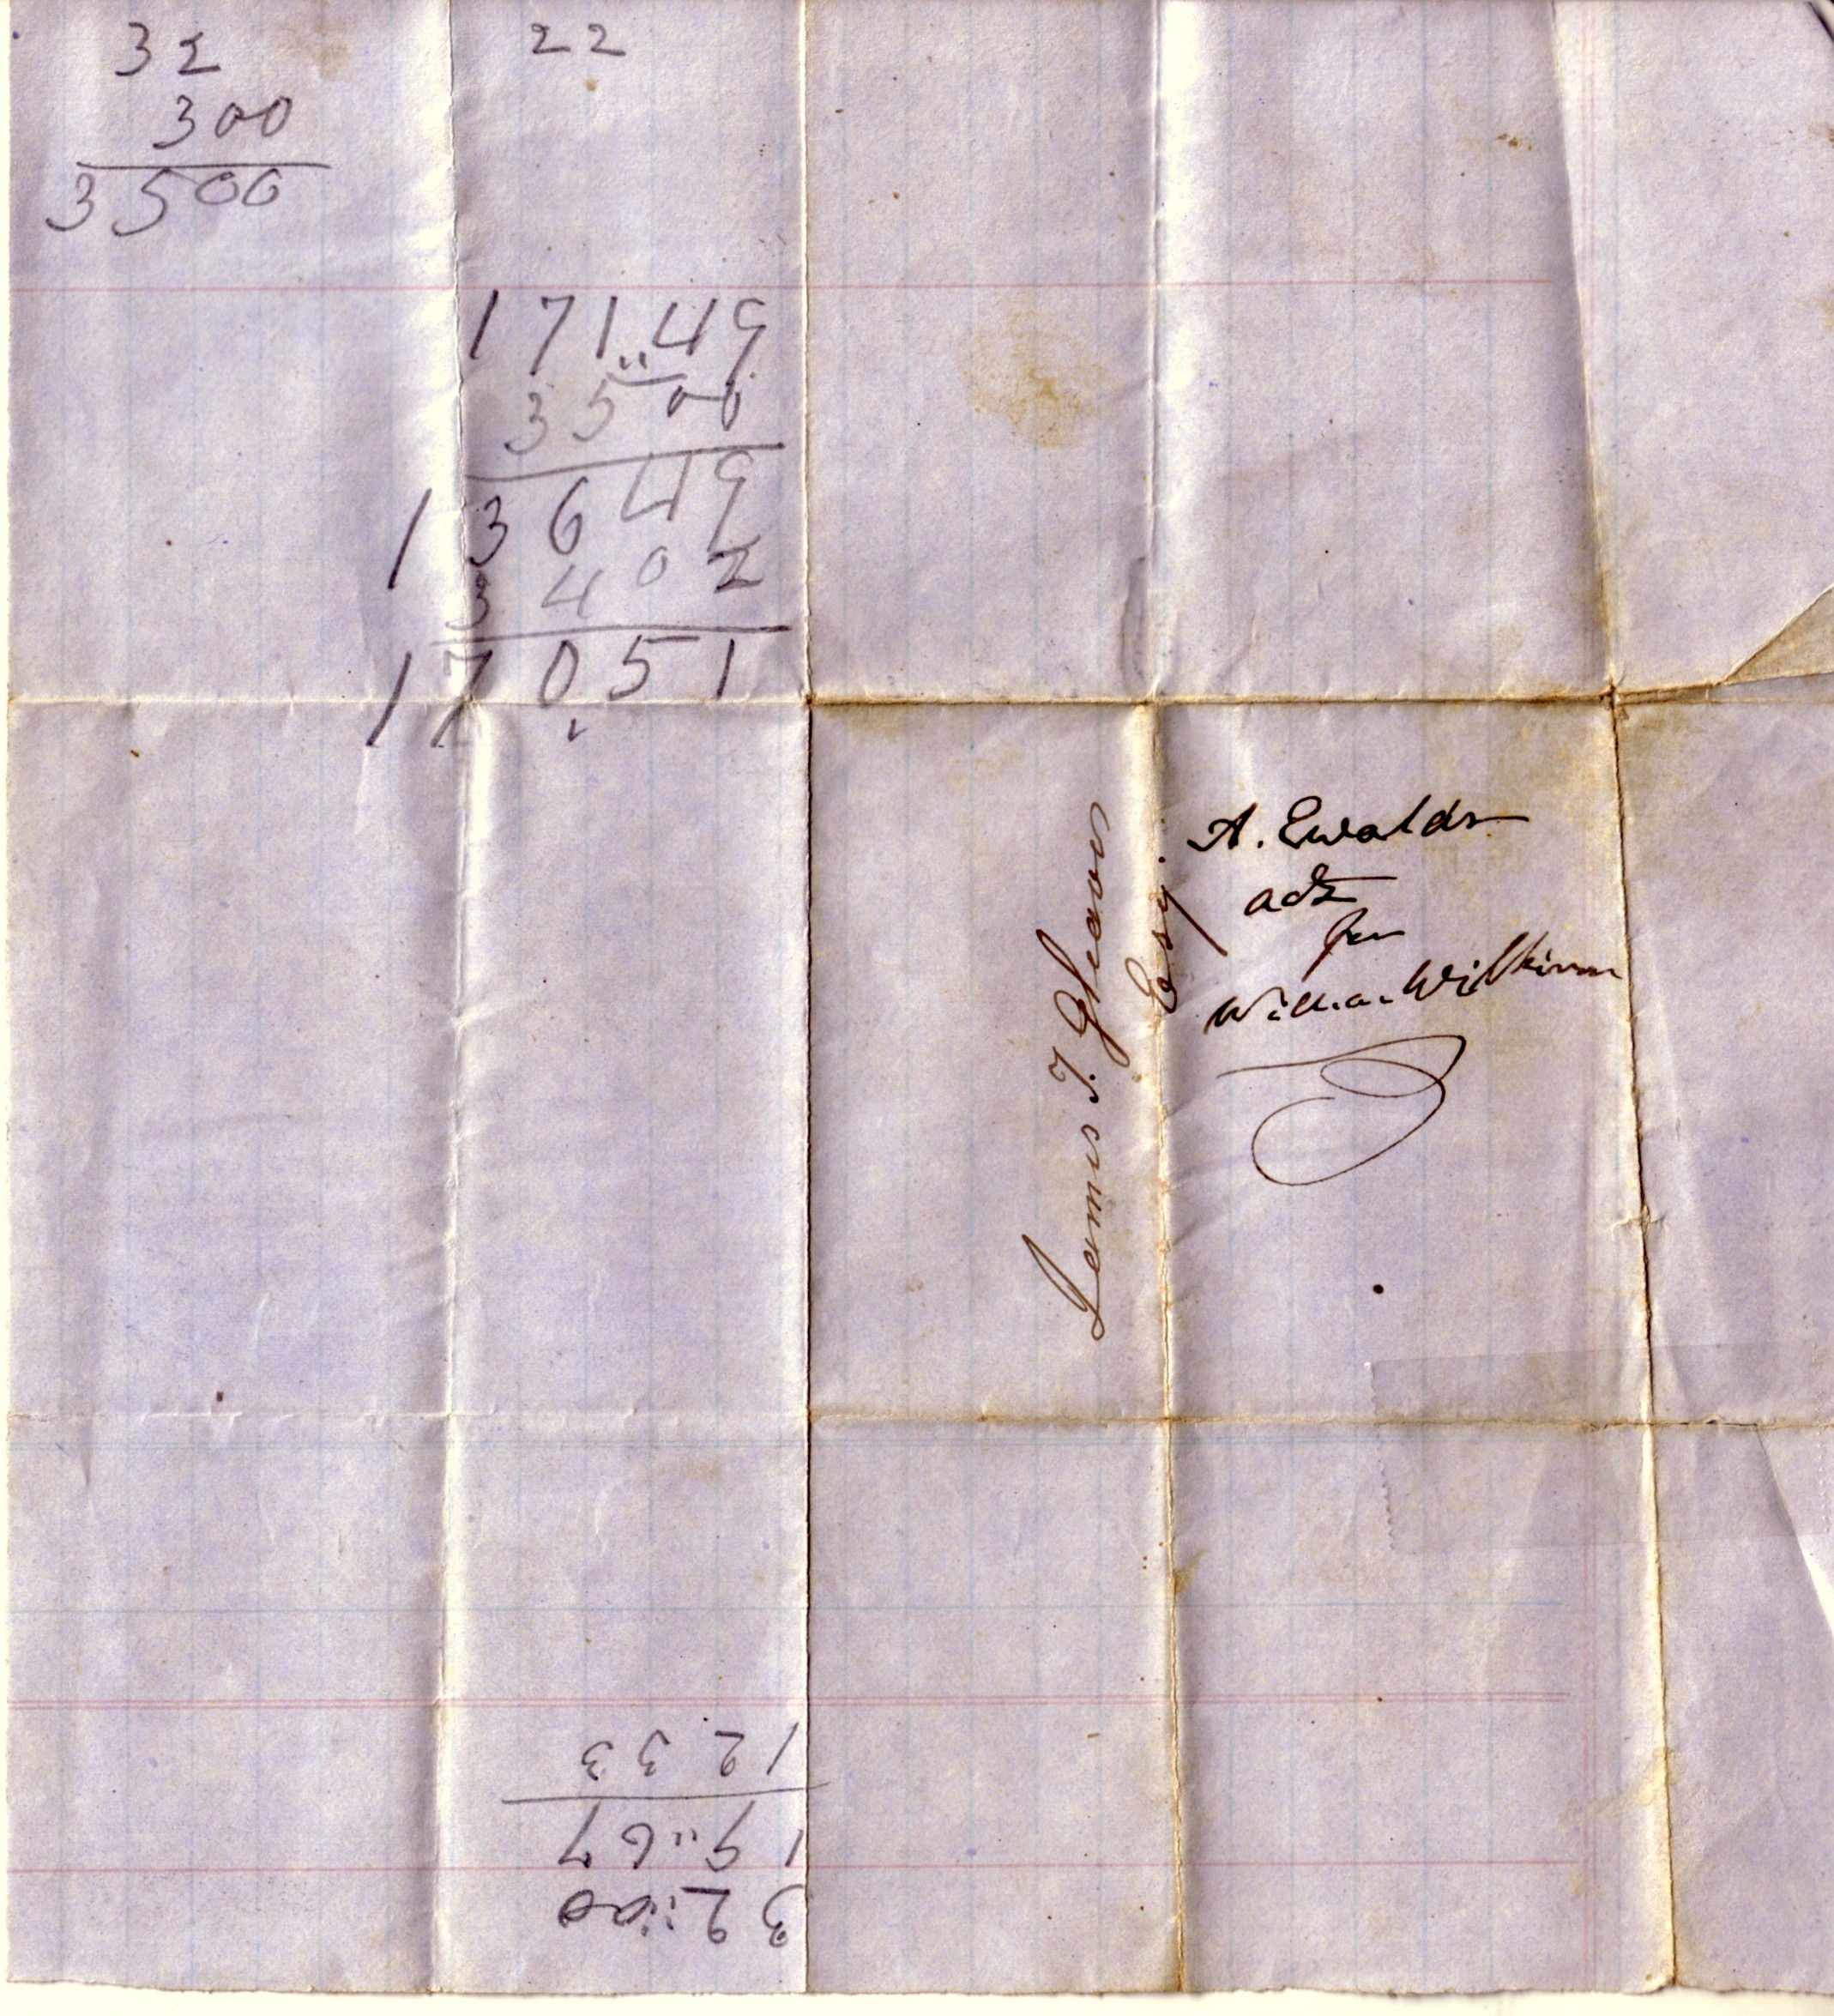 32
300
3500
22
171..49
3500
13649
3402
17051
James T. Gleaves
Esq.
A. Ewalds
act
for
William Wilkinson
32::00
19..67
1233